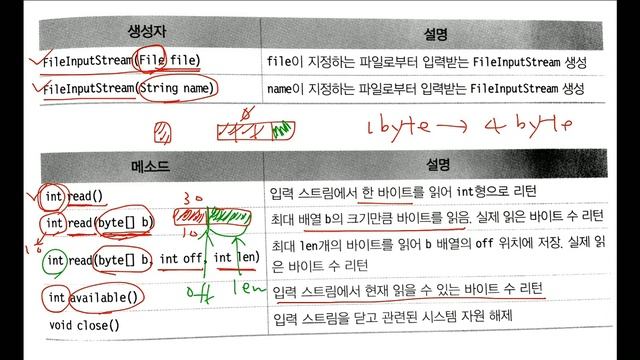 생성자 설명
FileInputStream(File file) file이 지정하는 파일로부터 입력받는 FileInputStream 생성
FileInputStream(String name) name이 지정하는 파일로부터 입력받는 FileInputStream 생성
1byte → 4 byte
메소드 설명
int read() 입력 스트림에서 한 바이트를 읽어 int형으로 리턴
30
int read(byte[] b) 최대 배열 b의 크기만큼 바이트를 읽음. 실제 읽은 바이트 수 리턴
10
int read(byte[] b, int off, int len) 최대 len개의 바이트를 읽어 b 배열의 off 위치에 저장. 실제 읽
은 바이트 수 리턴
off len
int available() 입력 스트림에서 현재 읽을 수 있는 바이트 수 리턴
void close() 입력 스트림을 닫고 관련된 시스템 자원 해제